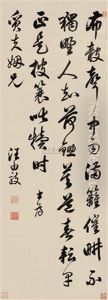 布穀聲中雨滿籬催耕不
獨野人知荷鋤莫道春耘早
正是披蓑叱犢時
姻兄 汪由敦